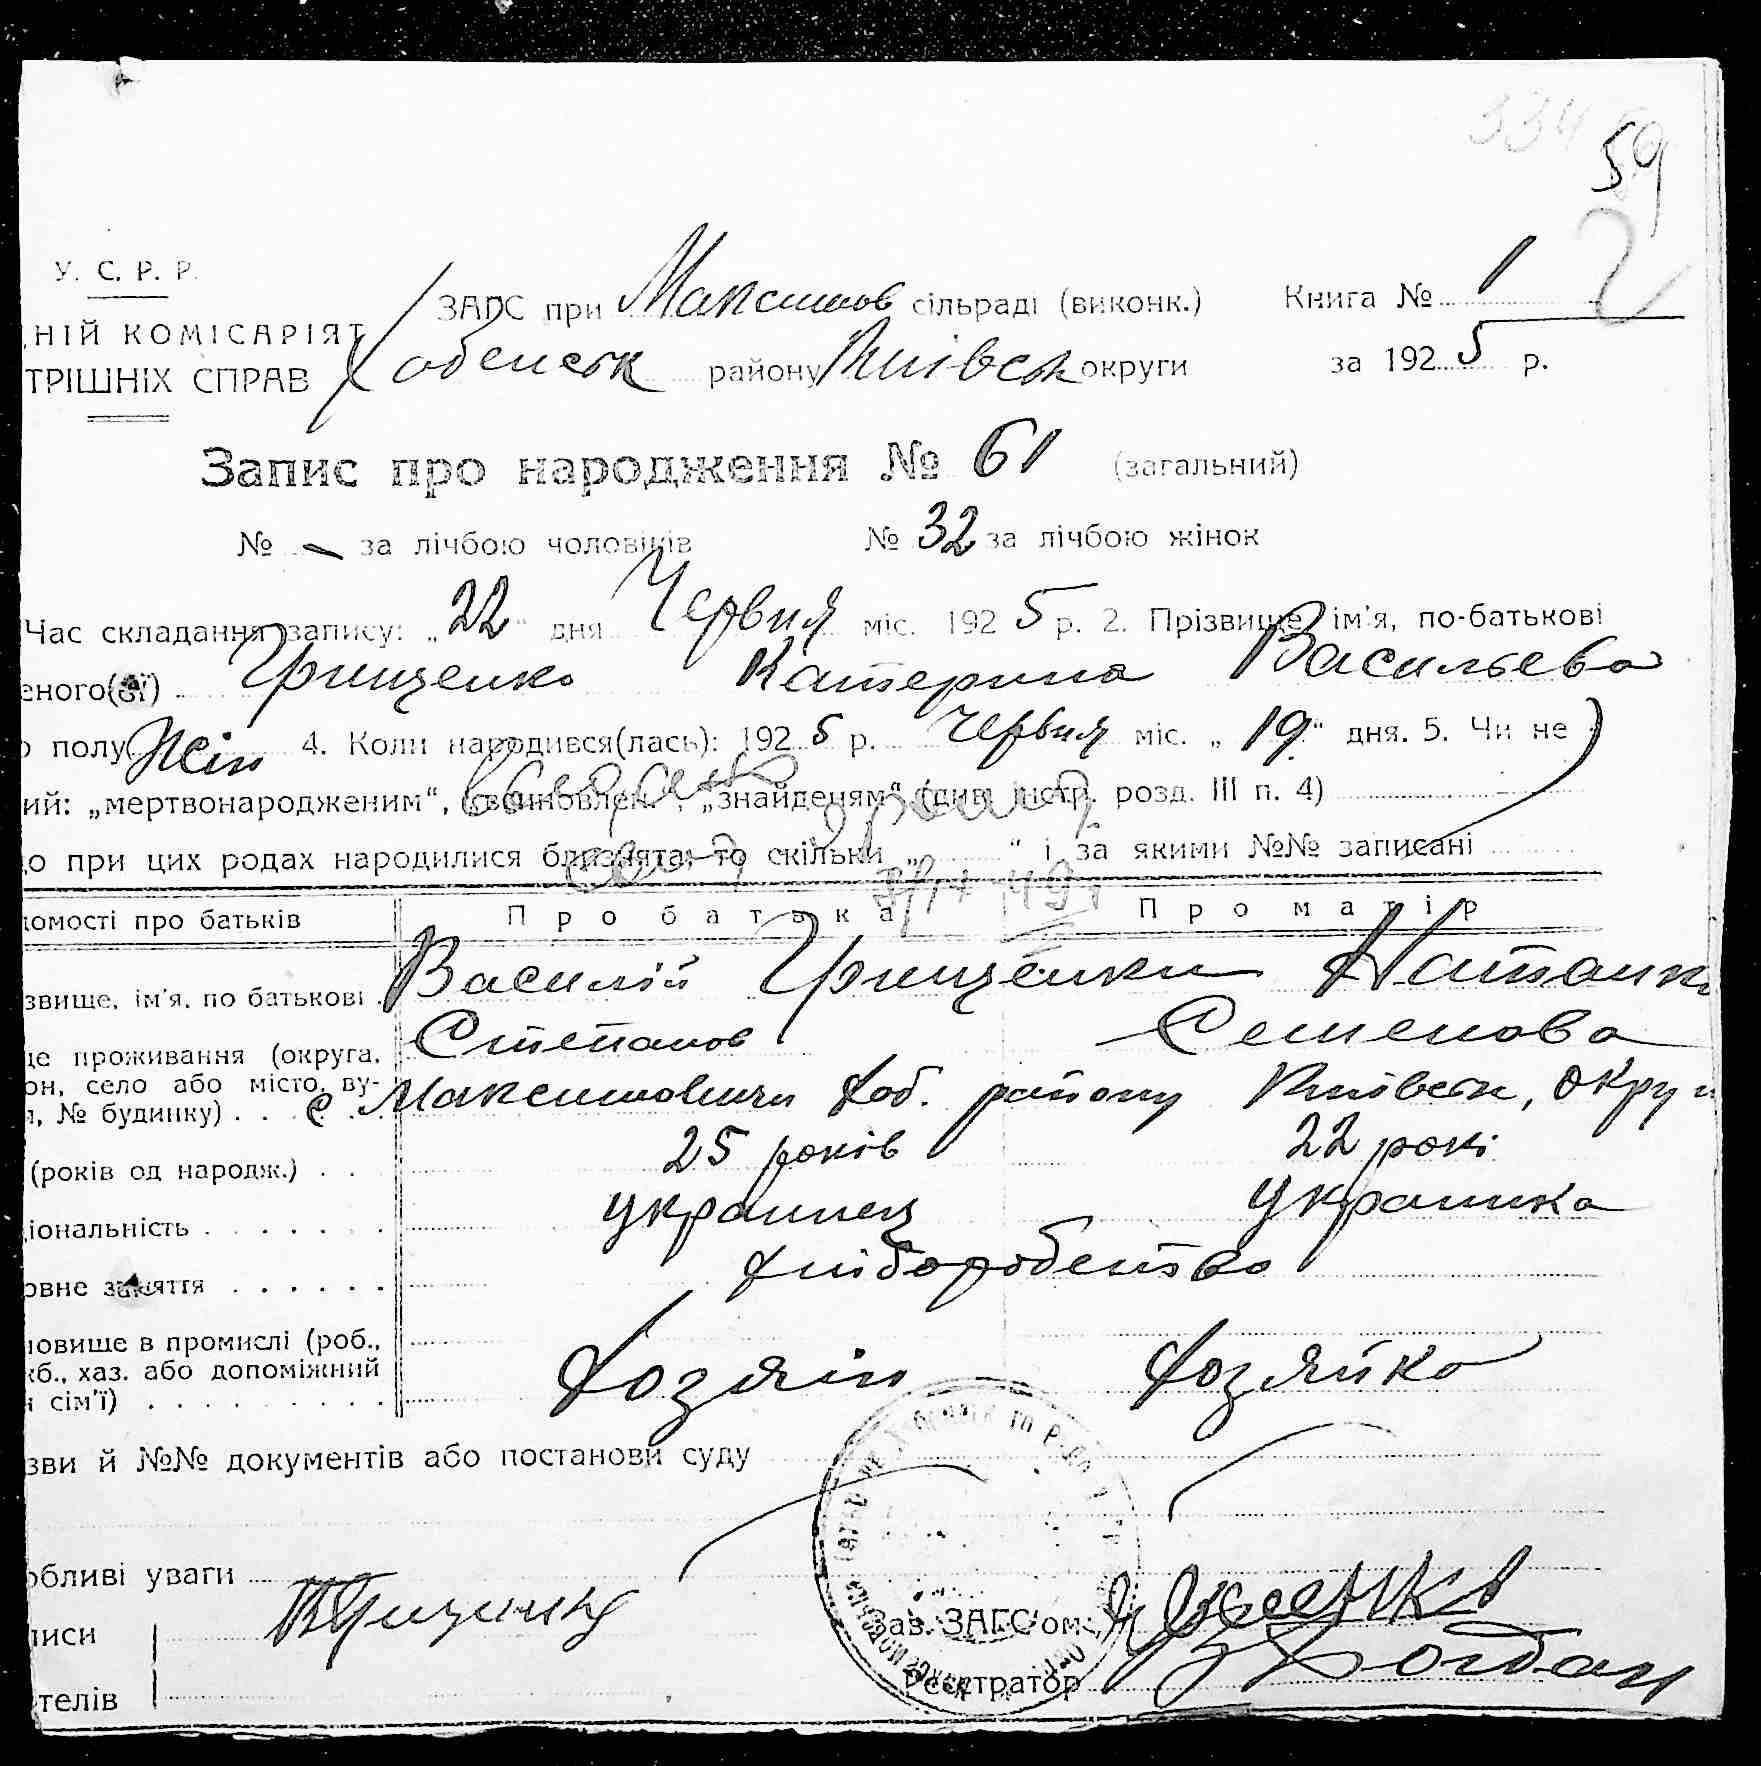 334
59
2
У. С. Р. Р.
ЗАГС при Максимов сільраді (виконк.) Книга № 1
НІЙ КОМІСАРІЯТ
ТРІШНІХ СПРАВ Хабенськ району Київськ округи за 1925 р.
Запис про народження № 61 (загальний)
№ - за лічбою чоловіків № 32 за лічбою жінок
Час складання запису: „22“ дня Червня міс. 1925 р. 2. Прізвище, ім'я, по-батькові
еного(ої) Грищенко Катерина Васильева
полу Жін 4. Коли народився(лась): 1925 р. Червня міс. „19“ дня. 5. Чи не
ий: „мертвонародженим“, „ “, „знайденям“ (див. інстр. розд. III п. 4)
о при цих родах народилися близнята, то скільки „ “ і за якими №№ записані
домості про батьків Про батька Про матір
звище, ім'я, по батькові Василій Грищенки Наталка
Степанов Семенова
це проживання (округа,
он, село або місто, ву-
, № будинку) с Максимовичи Хаб. району Київськ, округ
(років од народж.) 25 років 22 рокі
іональність українец Українка
овне заняття хліборобство
новище в промислі (роб.,
жб., хаз. або допоміжний
сім'ї) Хозяін Хозяйка
зви й №№ документів або постанови суду
обливі уваги
писи Зав. ЗАГС'ом
Реєстратор Богдан
телів